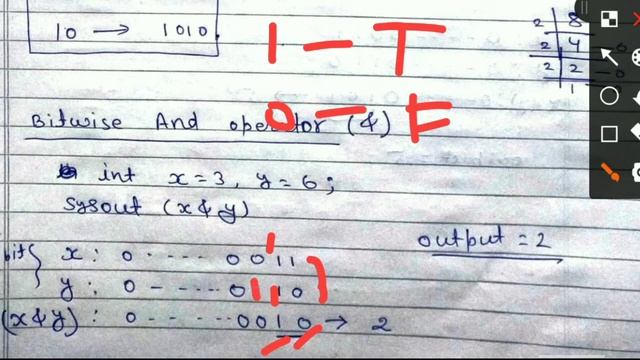 10 → 1010
1 — T
0 — F
2 8
2 4 — 0
2 2 — 0
1
Bitwise And operator (&)
int x = 3, y = 6;
sysout (x & y)
output = 2
bit { x : 0 - - - - - 0 0 1 1
y : 0 - - - - - 0 1 1 0
(x & y) : 0 - - - - - 0 0 1 0 → 2